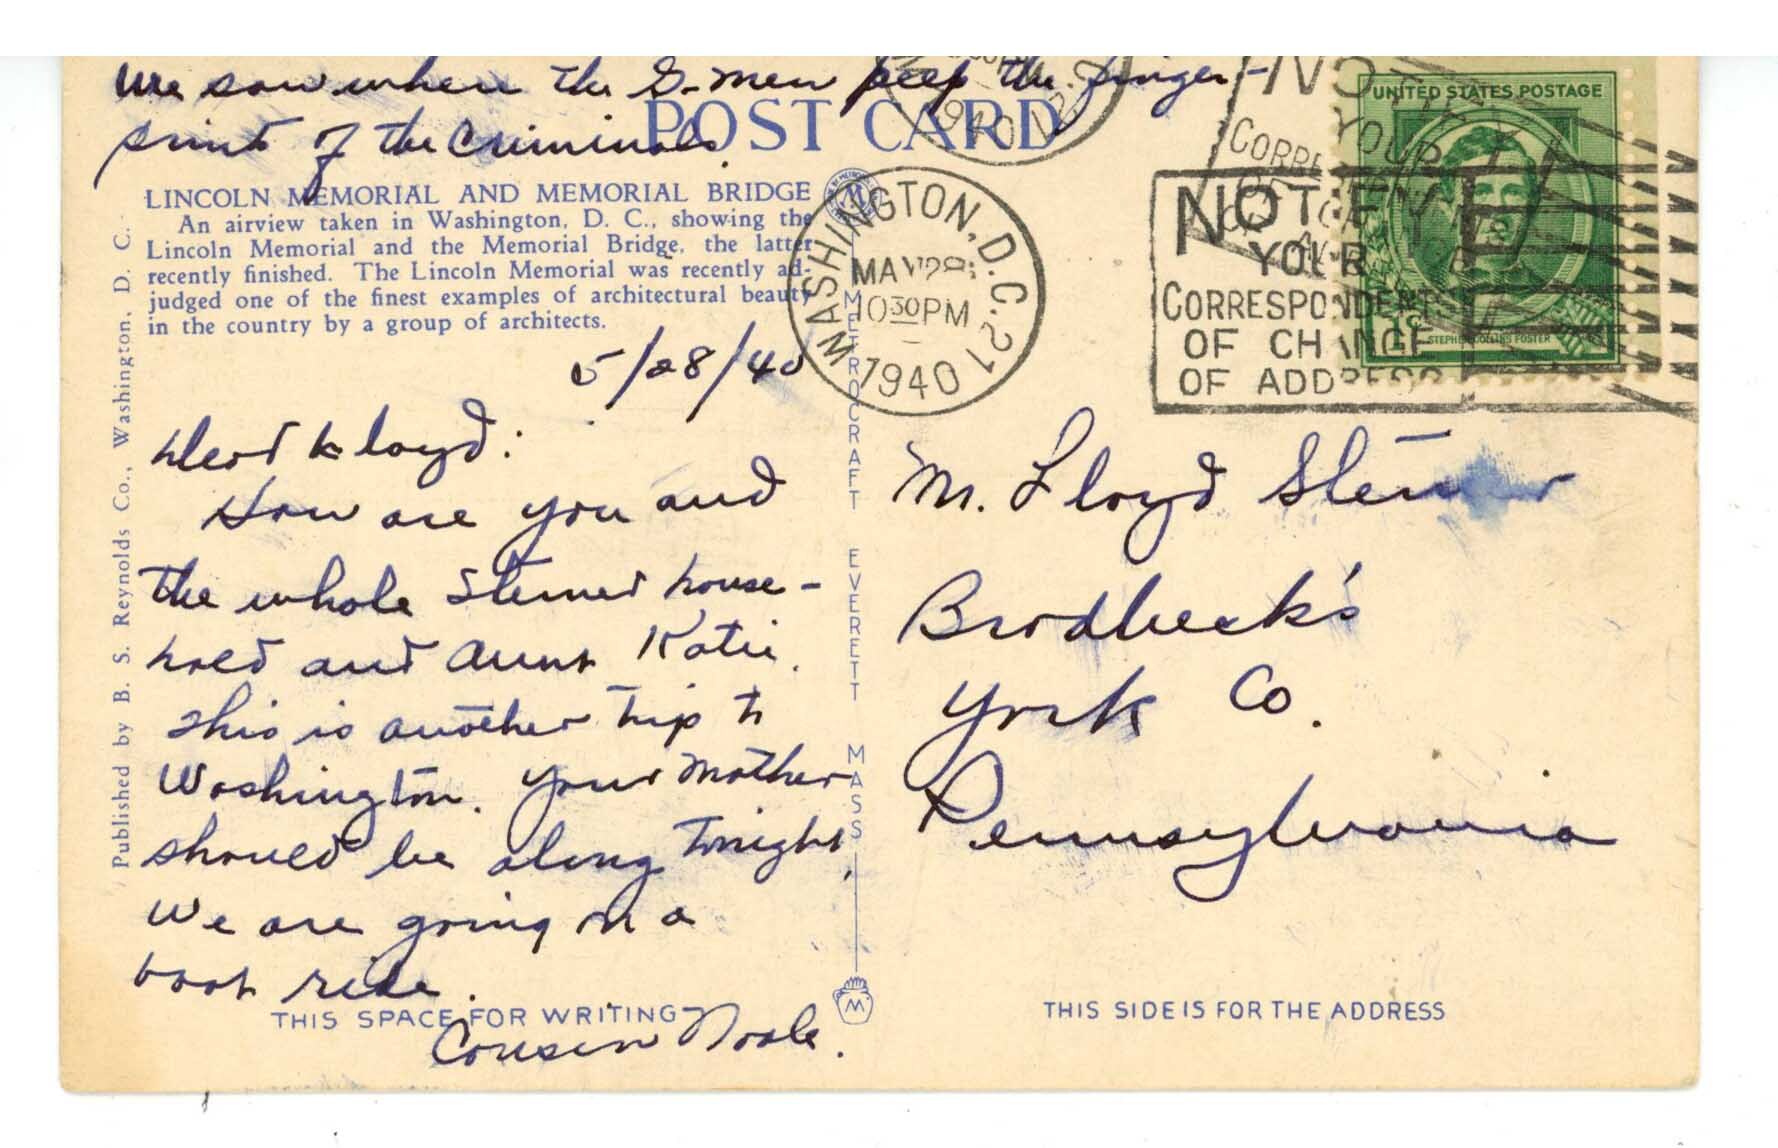 We saw where the G-men keep the finger-
prints of the Criminals.
POST CARD
LINCOLN MEMORIAL AND MEMORIAL BRIDGE
An airview taken in Washington, D. C., showing the
Lincoln Memorial and the Memorial Bridge, the latter
recently finished. The Lincoln Memorial was recently ad-
judged one of the finest examples of architectural beauty
in the country by a group of architects.
5/28/40
Dear Lloyd:
How are you and
the whole Sterner house-
hold and Aunt Katie.
This is another trip to
Washington. Your Mother
should be along tonight,
We are going on a
boat ride.
Cousin
THIS SPACE FOR WRITING
Published by B. S. Reynolds Co., Washington, D. C.
METROCRAFT EVERETT MASS
M
WASHINGTON, D.C. 21
MAY 28
1030 PM
1940
1940
NOTIFY
YOUR
CORRESPONDENTS
OF CHANGE
OF ADDRESS
UNITED STATES POSTAGE
1¢
STEPHEN COLLINS FOSTER
M. Lloyd Sterner
Brodbeck's
York Co.
Pennsylvania
THIS SIDE IS FOR THE ADDRESS